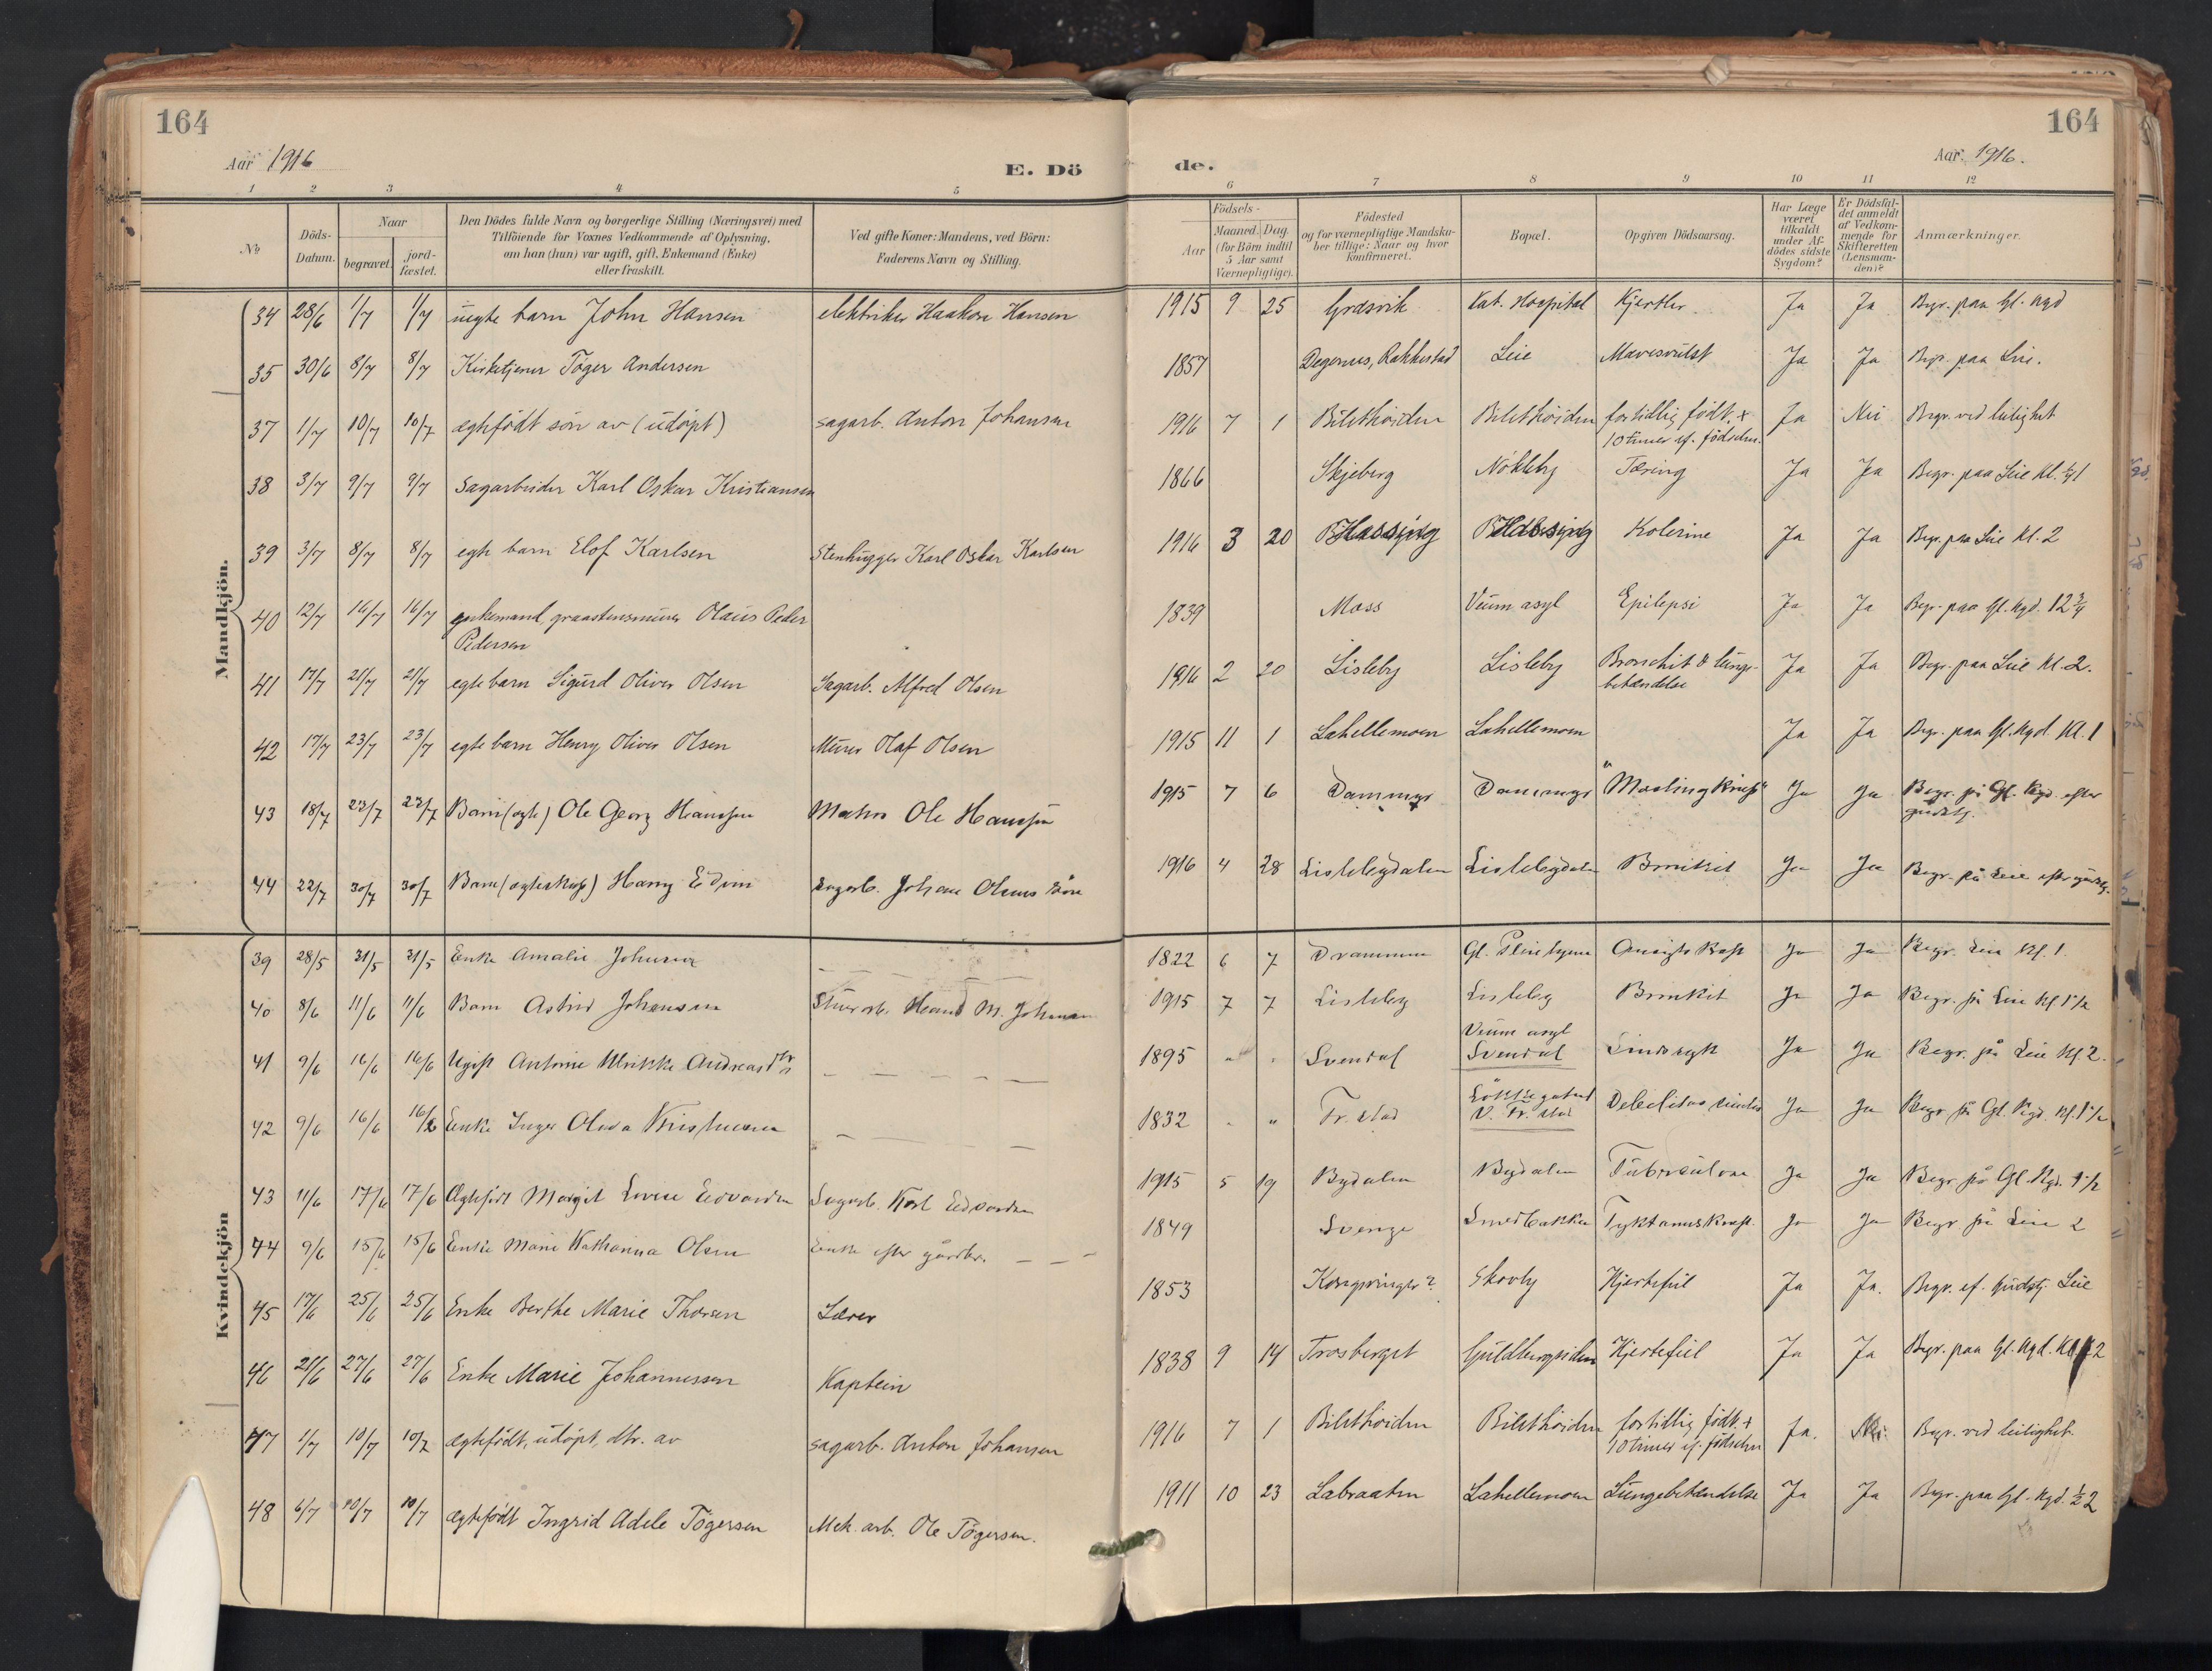 164
164
Aar 1916
E. Dö
de.
Aar 1916.
1 2 3 4 5 6 7 8 9 10 11 12
No
Döds-Datum.
Naar
begravet.
jord-fæstet.
Den Dödes fulde Navn og borgerlige Stilling (Næringsvei) med
Tilföiende for Voxnes Vedkommende af Oplysning,
om han (hun) var ugift, gift, Enkemand (Enke)
eller fraskilt.
Ved gifte Koner: Mandens, ved Börn:
Faderens Navn og Stilling.
Födsels-
Aar
Maaned. Dag.
(for Börn indtil
5 Aar samt
Værnepligtige).
Födested
og for værnepligtige Mandska-
ber tillige: Naar og hvor
Konfirmeret.
Bopæl.
Opgiven Dödsaarsag.
Har Læge
været
tilkaldt
under Af-
dödes sidste
Sygdom?
Er Dödsfal-
det anmeldt
af Vedkom-
mende for
Skifteretten
(Lensman-
den)?
Anmærkninger.
Mandkjön.
34 28/6 1/7 1/7 uegte barn John Hansen elektriker Haakon Hansen 1915 9 25 Græsvik Kat. Hospital Kjertler Ja Ja Begr. paa Gl. Kgd
35 30/6 8/7 8/7 Kirketjener Töger Andersen 1857 Degernes, Rakkestad Leie Mavesvulst Ja Ja Begr. paa Leie.
37 1/7 10/7 10/7 ægtefödt sön av (udöpt) sagarb. Anton Johansen 1916 7 1 Bilethöiden Bilethöiden for tidlig födt, +
10 timer ef. födselen. Ja Nei Begr. ved leilighet
38 3/7 9/7 9/7 Sagarbeider Karl Oskar Kristiansen 1866 Skjeberg Nökleby Tæring Ja Ja Begr. paa Leie Kl. ½1
39 3/7 8/7 8/7 egte barn Elof Karlsen Stenhugger Karl Oskar Karlsen 1916 3 20 Kolerine Ja Ja Begr. paa Leie Kl. 2
40 12/7 16/7 16/7 enkemand, graastensmurer Olaus Peder
Pedersen 1839 Moss Veum asyl Epilepsi Ja Ja Begr. paa Gl. Kgd. 12 ¾
41 17/7 21/7 21/7 egte barn Sigurd Oliver Olsen Sagarb. Alfred Olsen 1916 2 20 Lisleby Lisleby Bronchit & lunge-
betændelse Ja Ja Begr. paa Leie Kl. 2.
42 17/7 23/7 23/7 egte barn Henry Oliver Olsen Murer Olaf Olsen 1915 11 1 Lahellemoen Lahellemoen Ja Ja Begr. paa Gl. Kgd. Kl. 1
43 18/7 23/7 23/7 Barn (egte) Ole Georg Hanssen Matros Ole Hanssen 1915 7 6 Dammyr Dammyr Ja Ja Begr. på Gl. Kgd. efter
gudstj.
44 22/7 30/7 30/7 Barn (egteskap) Harry Edvin Johan Olaus 1916 4 28 Lislebydalen Lislebydalen Bronkit Ja Ja Begr. på Leie efter gudstj.
Kvindekjön
39 28/5 31/5 31/5 Enke Amalie Johnsen 1822 6 7 Drammen Gl. Pleiehjem Ja Ja Begr. Leie Kl. 1.
40 8/6 11/6 11/6 Barn Astrid Johansen M. Johansen 1915 7 7 Lisleby Lisleby Bronkit Ja Ja Begr. på Leie Kl 1½
41 9/6 16/6 16/6 Ugift Antonie Ulrikke Andreasdtr 1895 " " Svendal Veum asyl
Svendal Sindssygk Ja Ja Begr. på Leie Kl. 2.
42 9/6 16/6 16/6 Enke Inger Olava Kristiansen 1832 " " Fr. stad
V. Fr. stad Debilitas senilis Ja Ja Begr. på Gl. Kgd. Kl. 1½
43 11/6 17/6 17/6 Ægtefödt Margit Lovise Edvardsen Sagarb. Karl Edvardsen 1915 5 19 Bydalen Bydalen Tuberculose Ja Ja Begr. på Gl. Kgd. 1½
44 9/6 15/6 15/6 Enke Marie Katharina Olsen Enke efter gårdbr. 1849 Svenge Smedbakken Tyktarmskræft. Ja Ja Begr. på Leie 2
45 17/6 25/6 25/6 Enke Berthe Marie Thoresen Lærer 1853 Kongsvinger? Skovly Hjertefeil Ja Ja. Begr. ef. gudstj. Leie
46 21/6 27/6 27/6 Enke Marie Johannessen Kaptein 1838 9 14 Trosberget Guldbergsiden Hjertefeil Ja Ja Begr. paa Gl. Kgd. Kl. 2
47 1/7 10/7 10/7 ægtefödt, udöpt, dtr. av sagarb. Anton Johansen 1916 7 1 Bilethöiden Bilethöiden for tidlig födt +
10 timer ef. födselen Ja. Nei. Begr. ved leilighet.
48 6/7 10/7 10/7 ægtefödt Ingrid Adele Tögersen Mek. arb. Ole Tögersen. 1911 10 23 Labraaten Lahellemoen Lungebetændelse Ja Ja Begr. paa Gl. Kgd. ½2